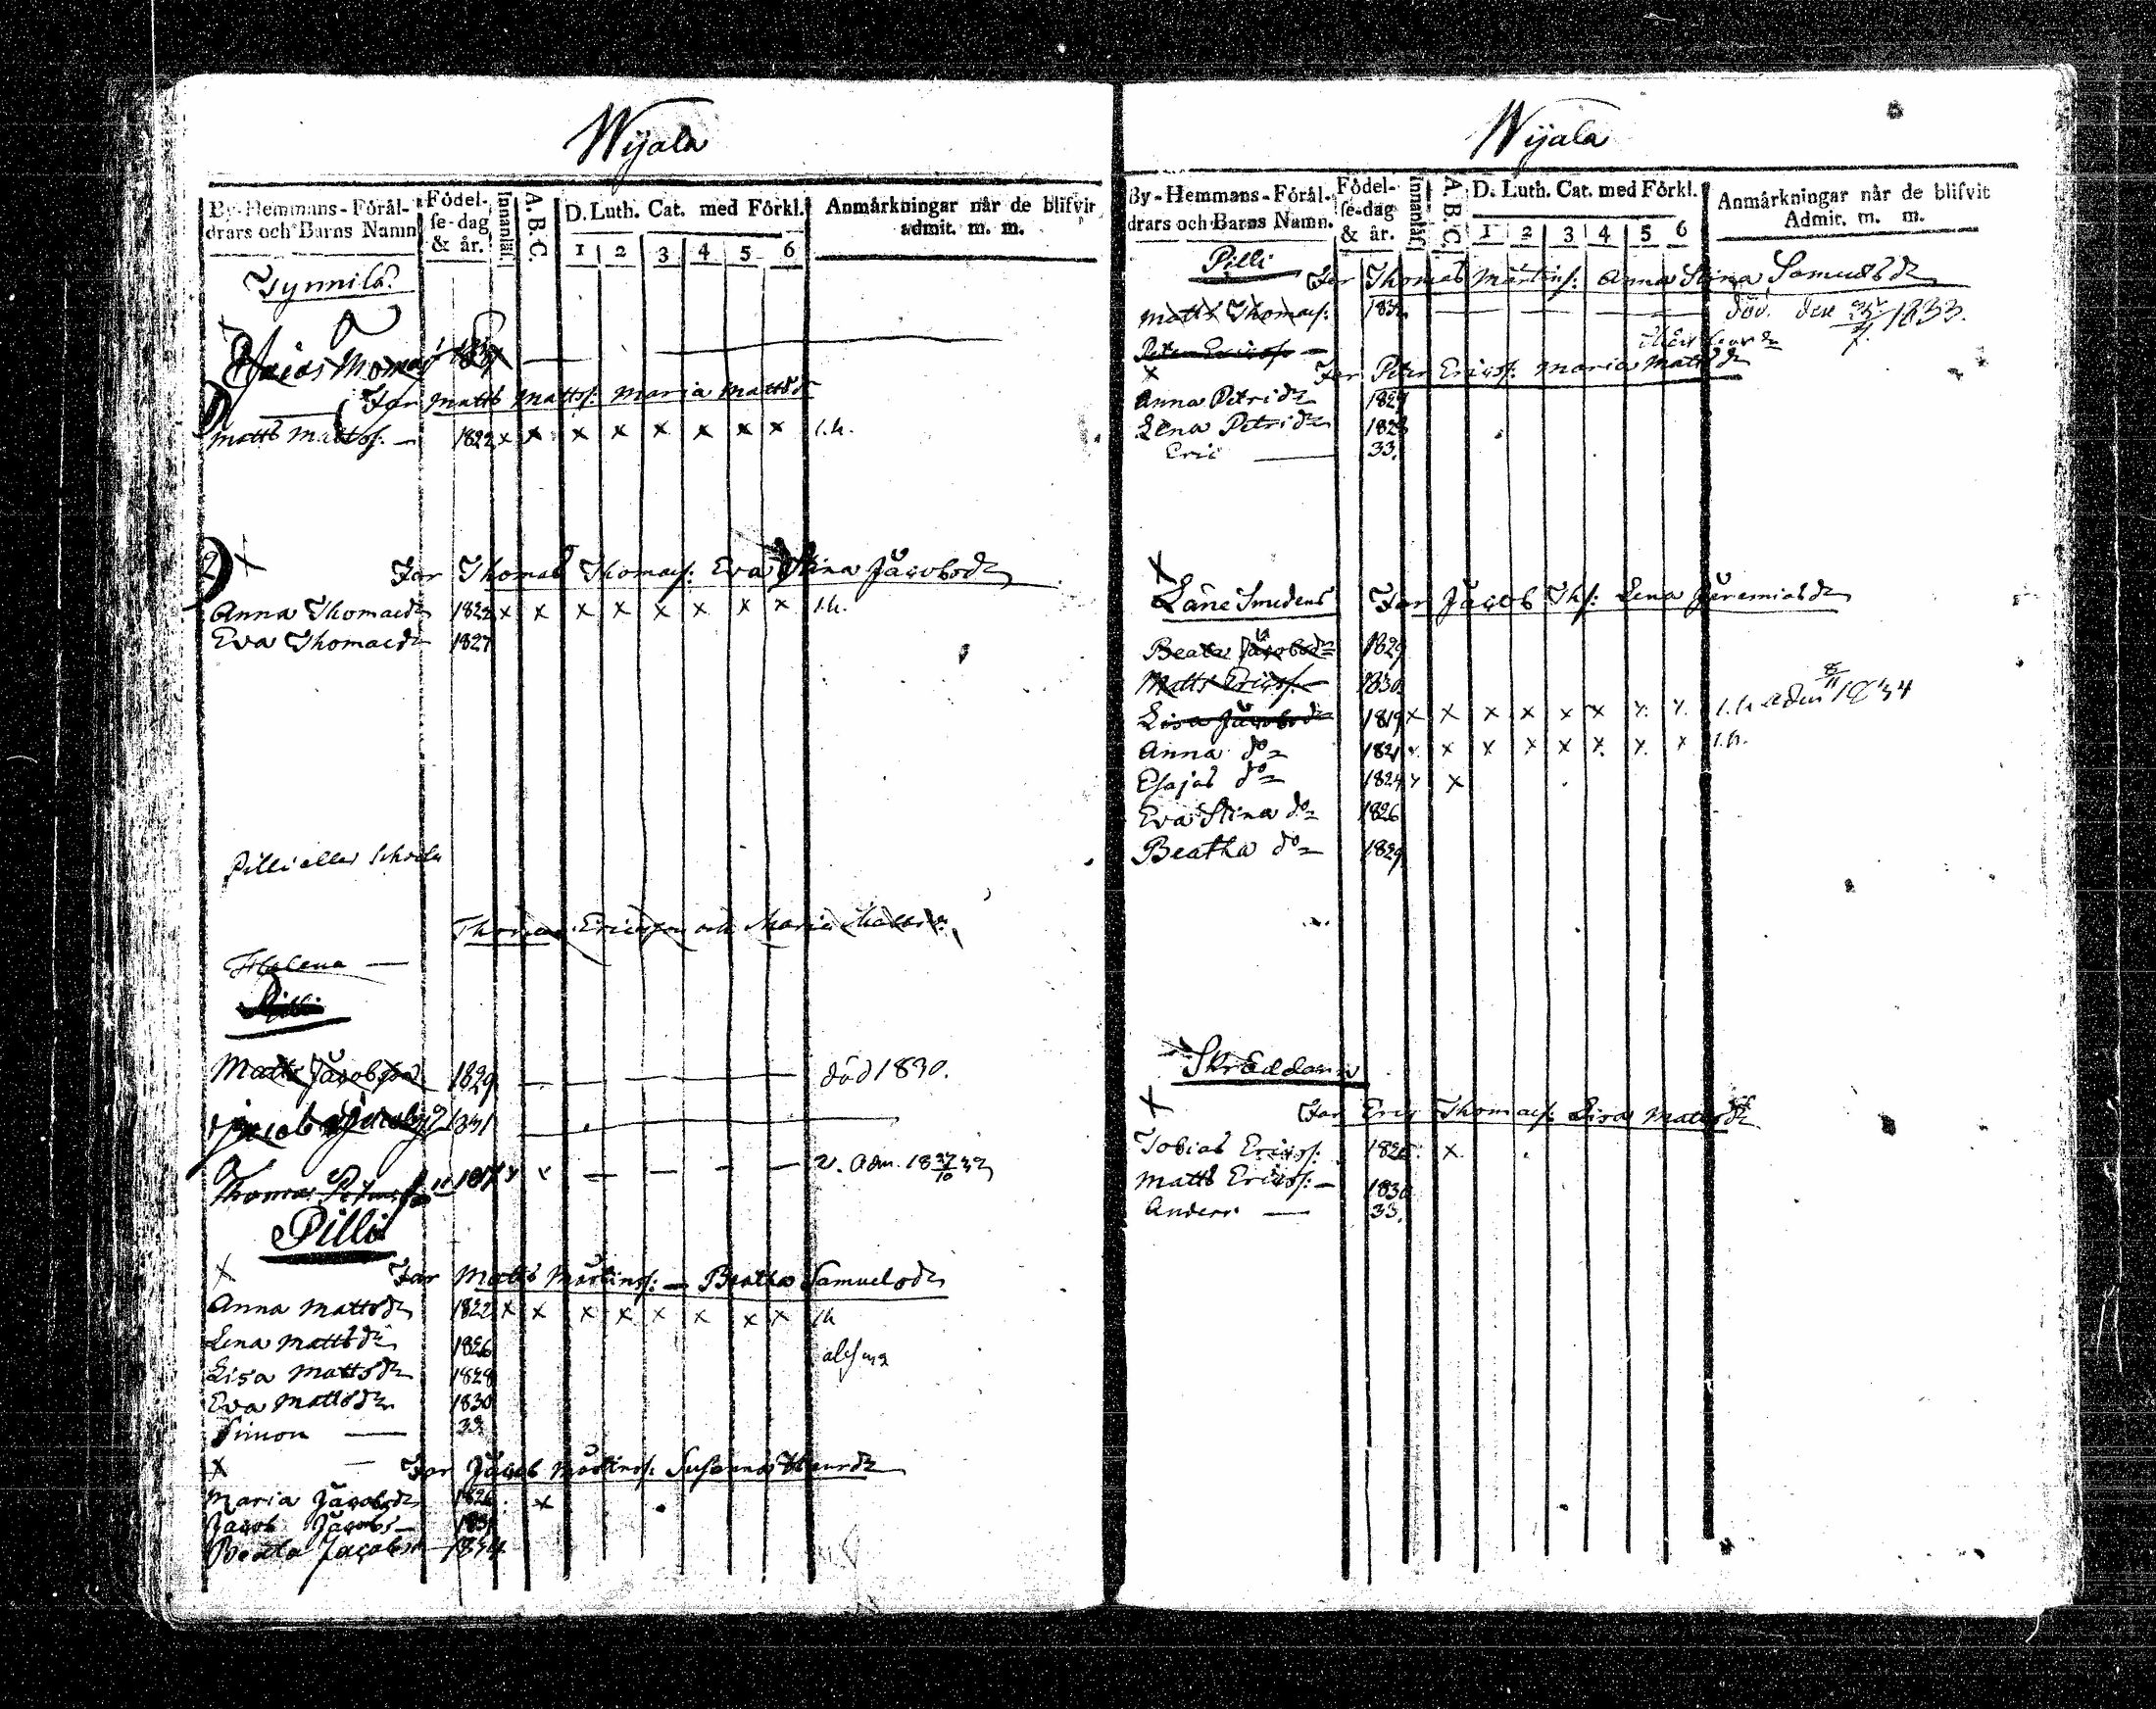 Wijala
By-Hemmans-Föräl-
drars och Barns Namn
Födel-
se-dag
& år.
Innanläs.
A. B. C.
D. Luth. Cat. med Förkl.
1 2 3 4 5 6
Anmärkningar när de blifvit
admit. m. m.
Tynnilä
Esaias Thomas
För Matts Mattss: Maria Mattsdr
Matts Mattss: — 1822 x x x x x x x x l.h.
2 x För Thomas Thomass: Eva Stina Jacobsdr
Anna Thomasdr 1822 x x x x x x x x l.h.
Eva Thomasdr 1827
Pilli eller
Thomas Ericsson och Maria
Helena —
Pilli
Matts Jacobsson 1829 — — — — död 1830.
Jacob Jacobs 1831
Thomas x x — — — — Adm. 18
Pilli
x För Matts Mårtenss: — Beatha Samuelsdr
Anna Mattsdr 1822 x x x x x x x x l.h
Lena Mattsdr 1826
Lisa Mattsdr 1828
Eva Mattsdr 1830
Simon — 33.
x För Jacob Mårtenss: Susanna
Maria Jacobsdr 1826 x
Jacob Jacobs —
Beata Jacobs 1834
Wijala
By-Hemmans-Förål-
drars och Barns Namn.
Födel-
se-dag
& år.
Innanläs.
A. B. C.
D. Luth. Cat. med Förkl.
1 2 3 4 5 6
Anmärkningar når de blifvit
Admit. m. m.
Pilli
För Thomas Mårtenss: Anna Stina Samuelsdr
Matts Thomass: 1832 — — — — död. den 1833.
x För Peter Ericss: Maria Mattsdr
Anna Petridr 1827
Lena Petridr 1828
Eric — 33.
x
Låne Smedens För Jacob Ths: Lena Jeremiasdr
Beata Jacobsdr 1829
Matts Ericss. — 1830
Lisa Jacobsdr 1819 x x x x x x x x l.h adm 8/11 1834
Anna do 1821 x x x x x x x x l.h.
Esajas do 1824 x x
Eva Stina do 1826
Beatha do 1829
Skräddaren
x För Eric Thomass: Lisa Mattsdr
Tobias Ericss: x
Matts Ericss: — 1830
Anders — 33.